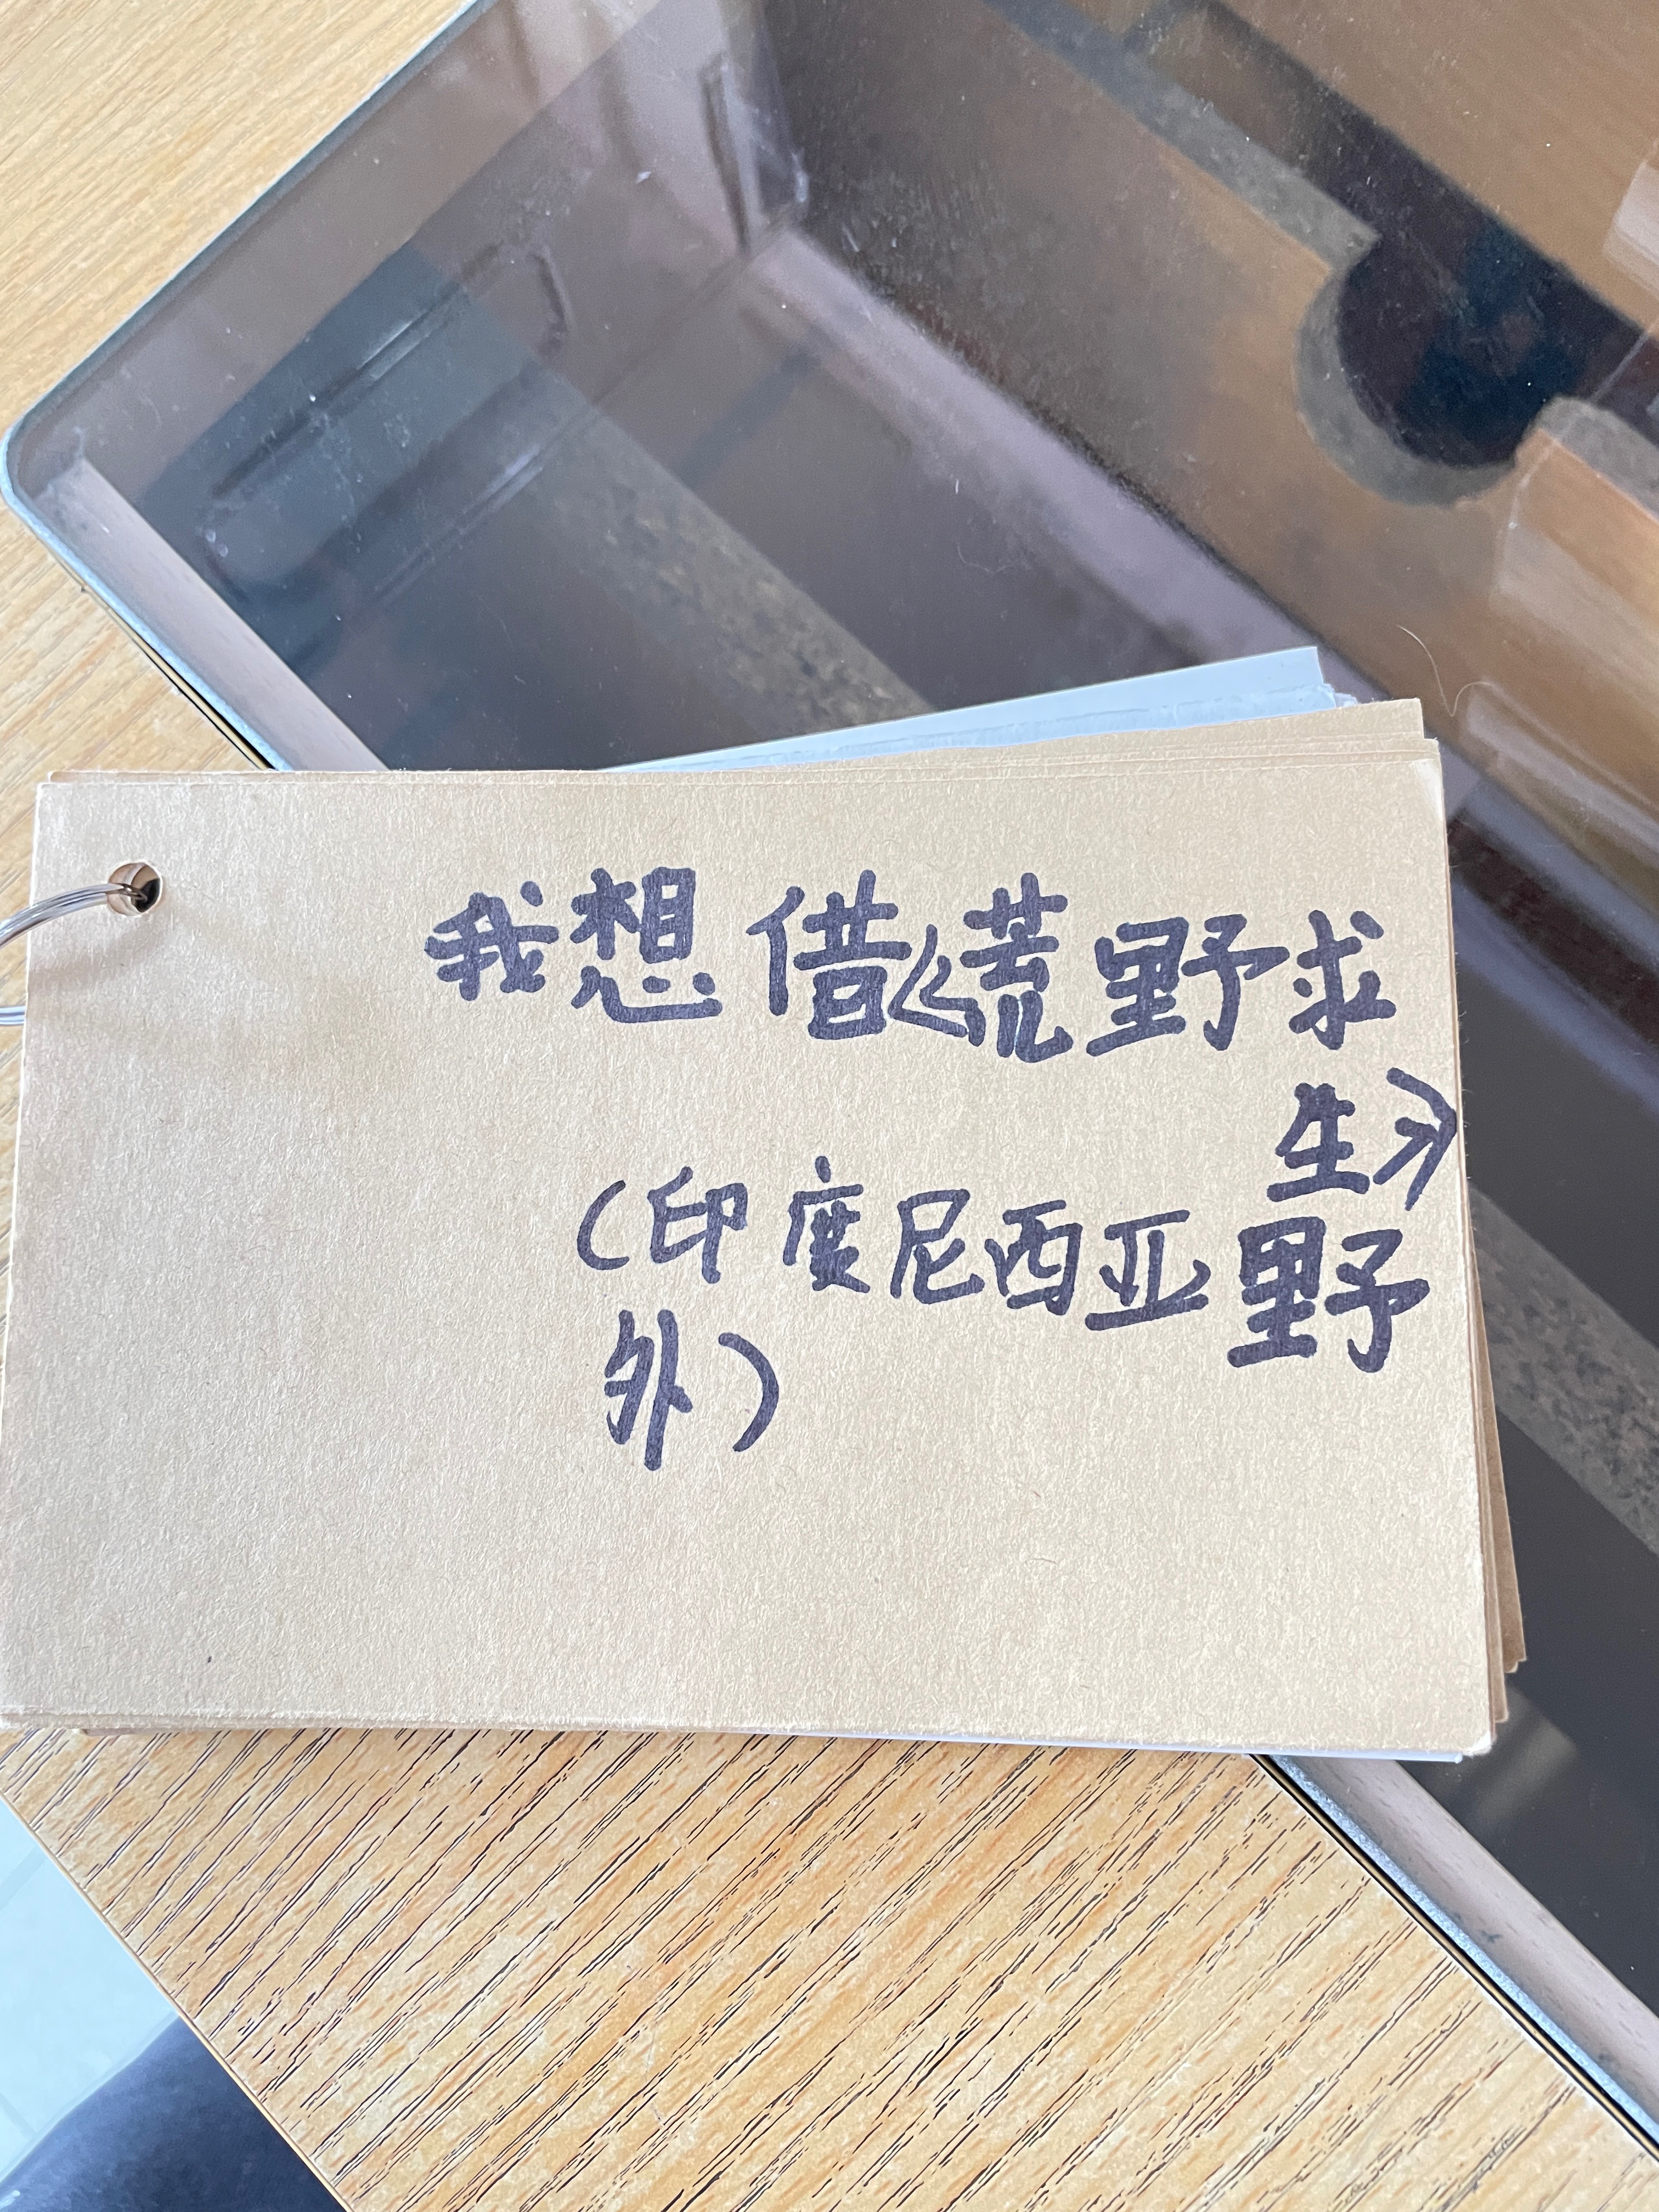 我想借《荒野求
生》
(印度尼西亚野
外)